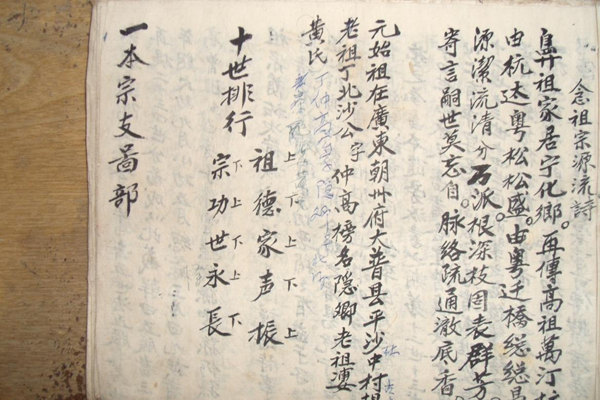 念祖宗源流詩
鼻祖家居宁化鄉。再傳高祖萬汀
由杭达粤松松盛。由粤迁橋総総昌
源潔流清分万派根深枝固表群芳。
寄言嗣世莫忘自。脉络疏通澈底香。
元始祖在廣東朝州府大普县平沙中村
老祖丁北沙公字仲高榜名隐鄉老祖婆
黄氏
十世排行
祖上德下家上声下振上
宗下功上世下永上長下
一本宗支啚部